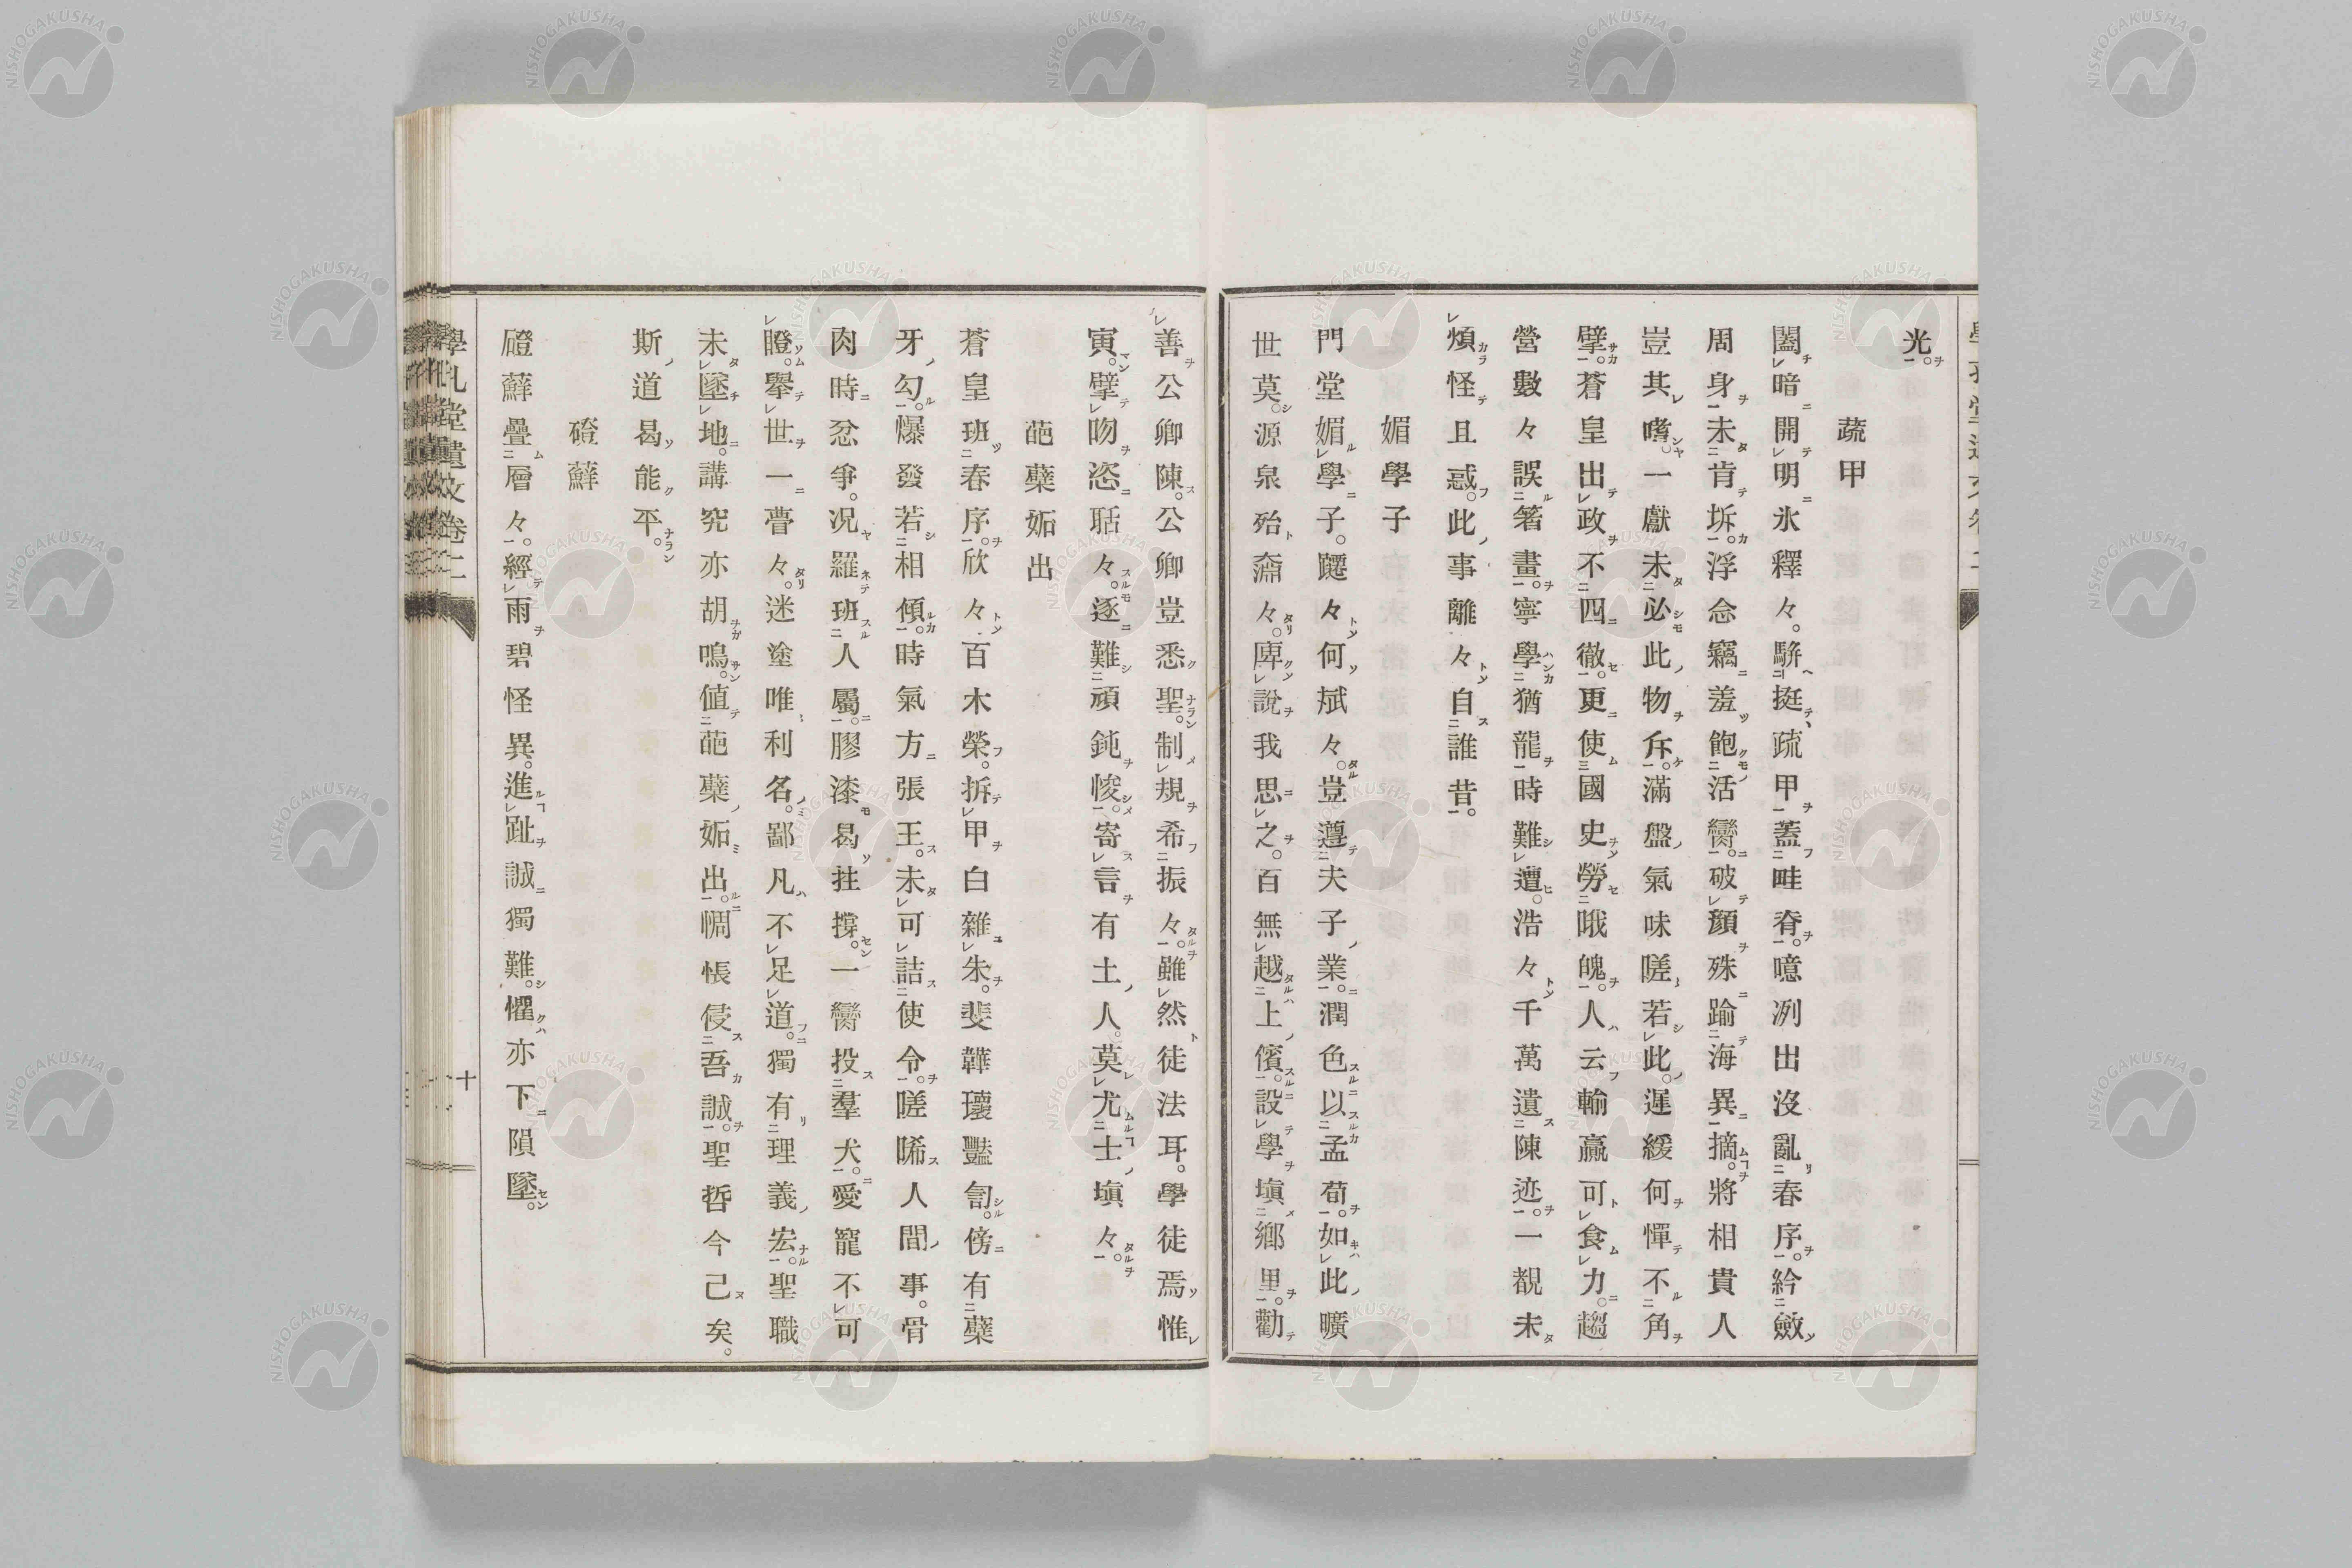 光。
蔬甲
闔暗開明氷釋々。駢挺疏甲蓋畦脊。噫冽出沒亂春序。紟斂
周身未肯坼。浮念竊羞飽活臠。破顔殊踰海異摘。將相貴人
豈其嗜。一獻未必此物斥。滿盤氣味嗟若此。遲緩何憚不角
擘。蒼皇出政不四徹。更使國史勞哦愧。人云輸贏可食力。趨
營數々誤箸畫。寧學猶龍時難遭。浩々千萬遺陳迹。一覩未
煩怪且惑。此事離々自誰昔。
媚學子
門堂媚學子。躚々何斌々。豈遵夫子業。潤色以孟荀。如此曠
世莫。源泉殆奫々。俾說我思之。百無越上儐。設學塡鄕里。勸
善公卿陳。公卿豈悉聖。制規希振々。雖然徒法耳。學徒焉惟
寅。擘吻恣聒々。逐難頑鈍悛。寄言有土人。莫尤士塡々。
葩蘗妬出
蒼皇班春序。欣々百木榮。拆甲白雜朱。斐韡瓌豔訇。傍有蘗
牙勾。爆發若相傾。時氣方張王。未可詰使令。嗟唏人間事。骨
肉時忿爭。况羅班人屬。膠漆曷拄撐。一臠投羣犬。愛寵不可
瞪。擧世一瞢々。迷塗唯利名。鄙凡不足道。獨有理義宏。聖職
未墜地。講究亦胡鳴。値葩蘗妬出。惆悵侵吾誠。聖哲今已矣。
斯道曷能平。
磴蘚
磴蘚疊層々。經雨碧怪異。進趾誠獨難。懼亦下隕墜。
學孔堂遺文卷二
十